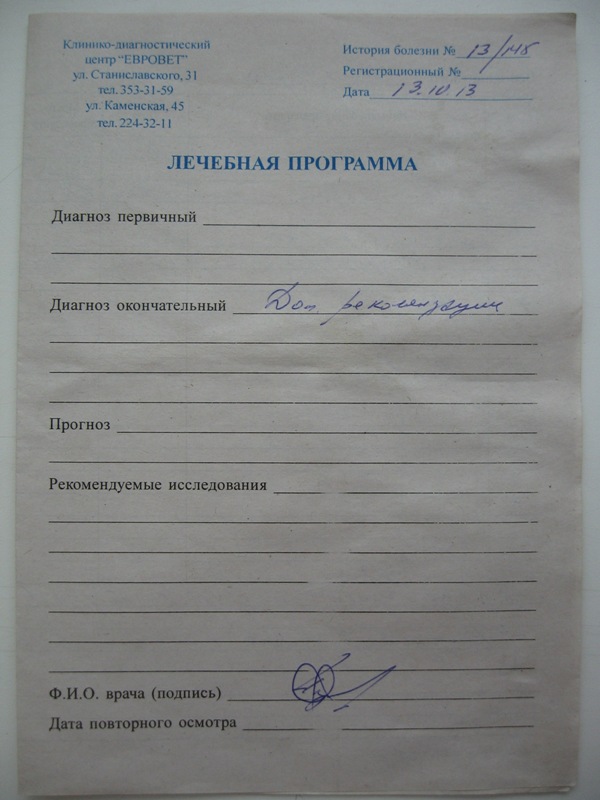 Клинико-диагностический
центр “ЕВРОВЕТ”
ул. Станиславского, 31
тел. 353-31-59
ул. Каменская, 45
тел. 224-32-11
История болезни № 13/148
Регистрационный №
Дата 13.10.13
ЛЕЧЕБНАЯ ПРОГРАММА
Диагноз первичный
Диагноз окончательный Доп. рекомендации
Прогноз
Рекомендуемые исследования
Ф.И.О. врача (подпись)
Дата повторного осмотра